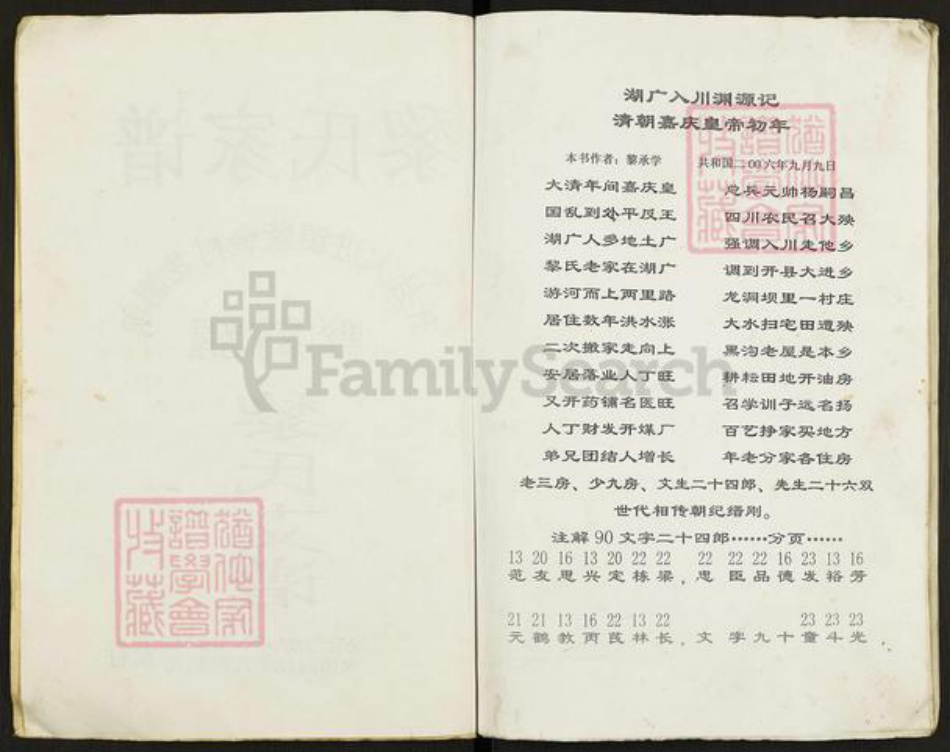 湖广入川渊源记
清朝嘉庆皇帝初年
本书作者：黎承学 共和国二00六年九月九日
大清年间嘉庆皇 总兵元帅杨嗣昌
国乱到处平反王 四川农民召大殃
湖广人多地土广 强调入川走他乡
黎氏老家在湖广 调到开县大进乡
游河而上两里路 龙洞坝里一村庄
居住数年洪水涨 大水扫宅田遭殃
二次搬家走向上 黑沟老屋是本乡
安居落业人丁旺 耕耘田地开油房
又开药铺名医旺 召学训子远名扬
人丁财发开煤厂 百艺挣家买地方
弟兄团结人增长 年老分家各住房
老三房、少九房、文生二十四郎、先生二十六双
世代相传朝纪绪刚。
注解90文字二十四郎……分页……
13 20 16 13 20 22 22 22 22 22 16 23 13 16
范友思兴定栋梁，忠臣品德发裕芳
21 21 13 16 22 13 22 23 23 23
元鹤教丙茂林长，文字九十童斗光
FamilySearch
黎氏家谱